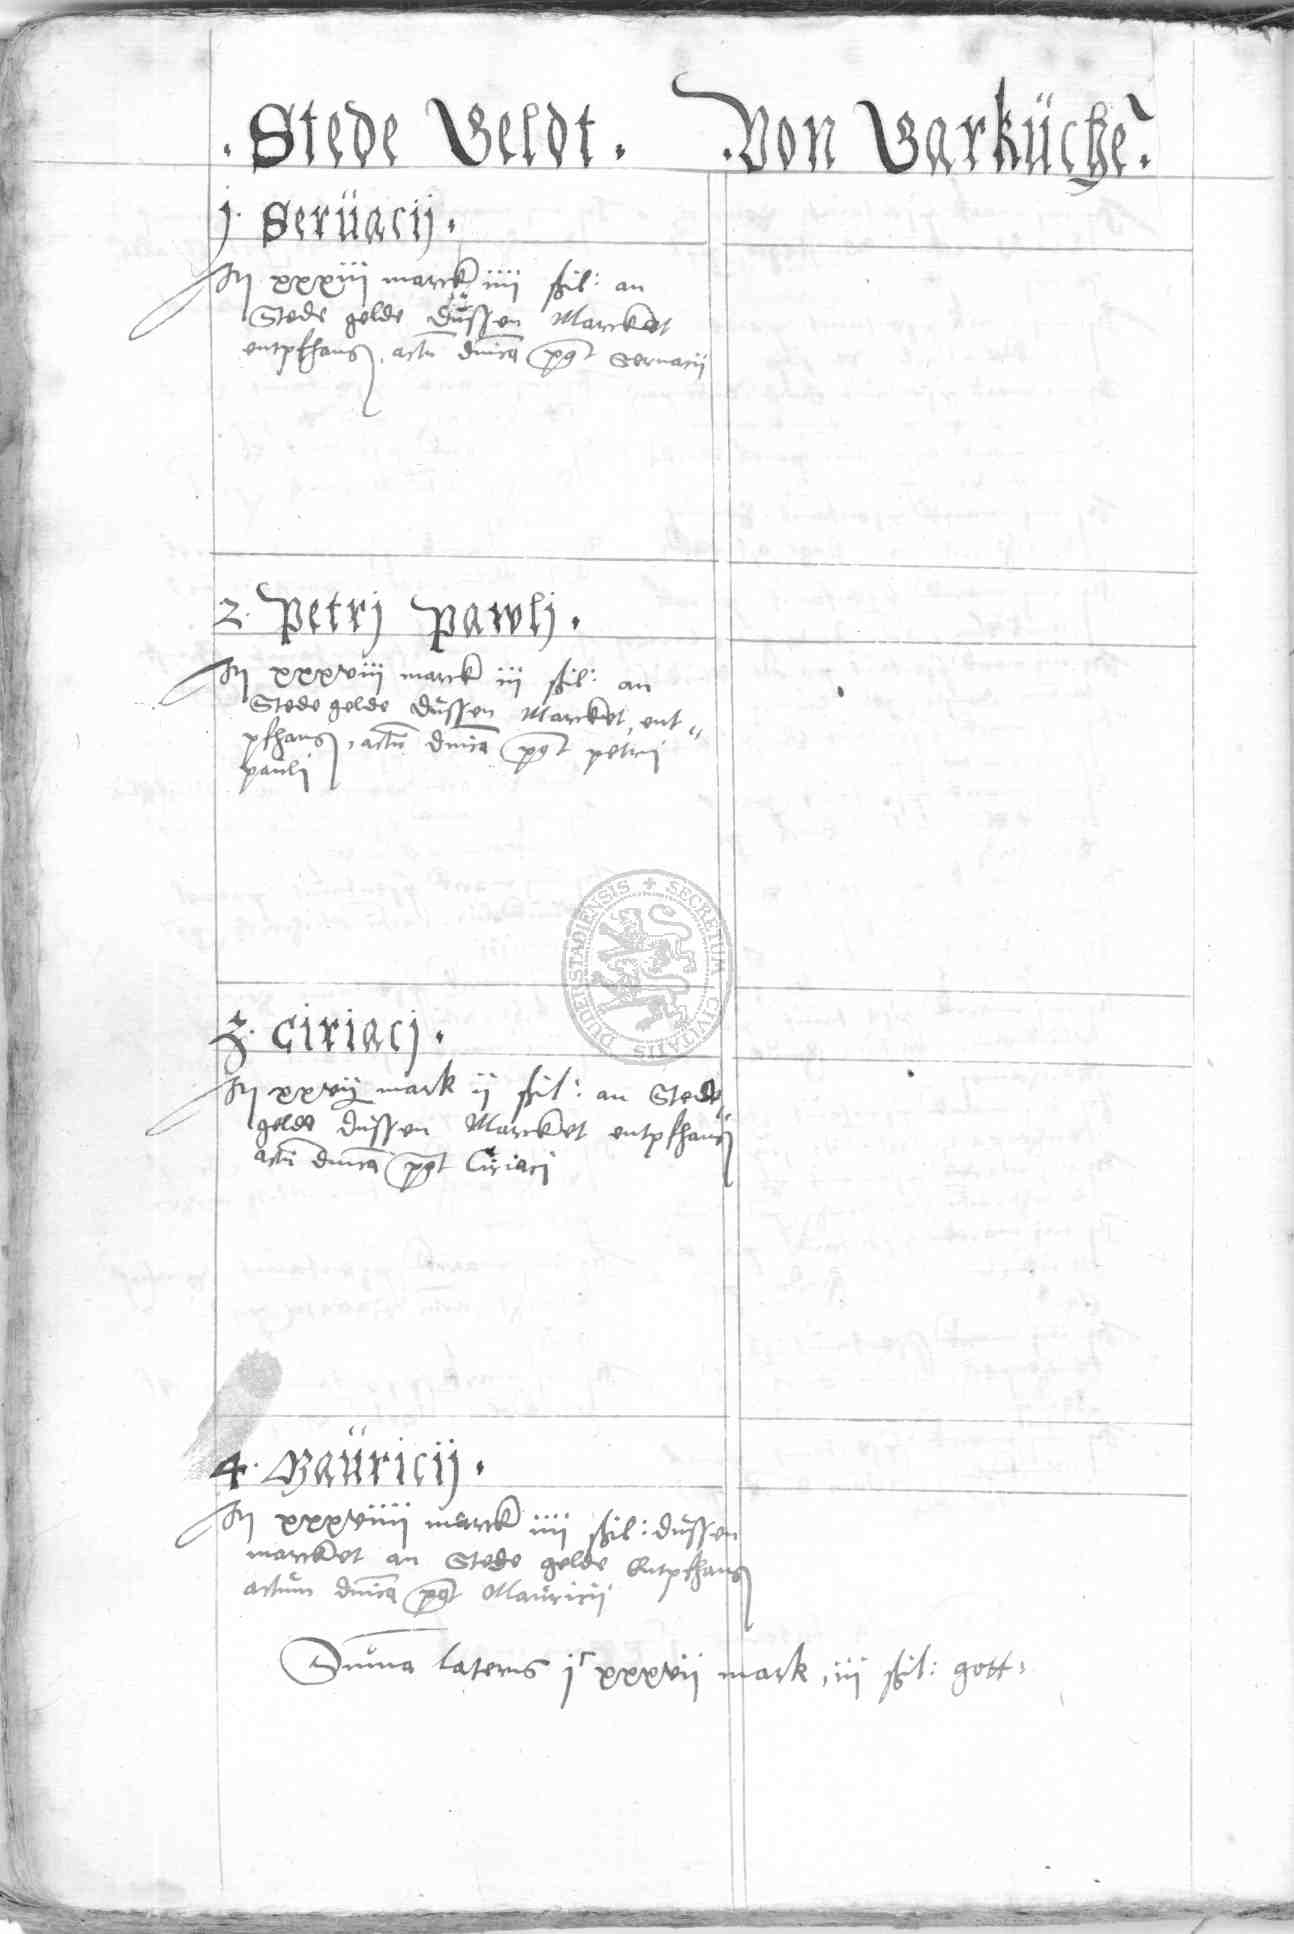 . Stede Geldt . . Von Garküche .
j. Serüacij .
Itᷠ xxxiii marck iiii ßil: an
Stede gelde düssen Marcket
entpfhans, actū dnicā pꝰt Servacii
2. Petrj Pawlj .
xxxviii marck iii ßil: an
Stede gelde düssen Marcket ent "
pfhans, actū dnicā pꝰt petrij
paulj
3. Ciriacj .
xxvij mark ij ßil: an Stede
gelde düssen Marcket entpfhans
actū dnicā pꝰt Ciriacj
4. Maüricij .
xxxviiii marck iiii ßil: düssen
marcket an Stede gelde Entpfhans
actum dnicā pꝰt Mauricij
Suma lateris jͨ xxxvii mark, iii ßil: gott:
SECRETUM CIVITATIS DUDERSTADIENSIS